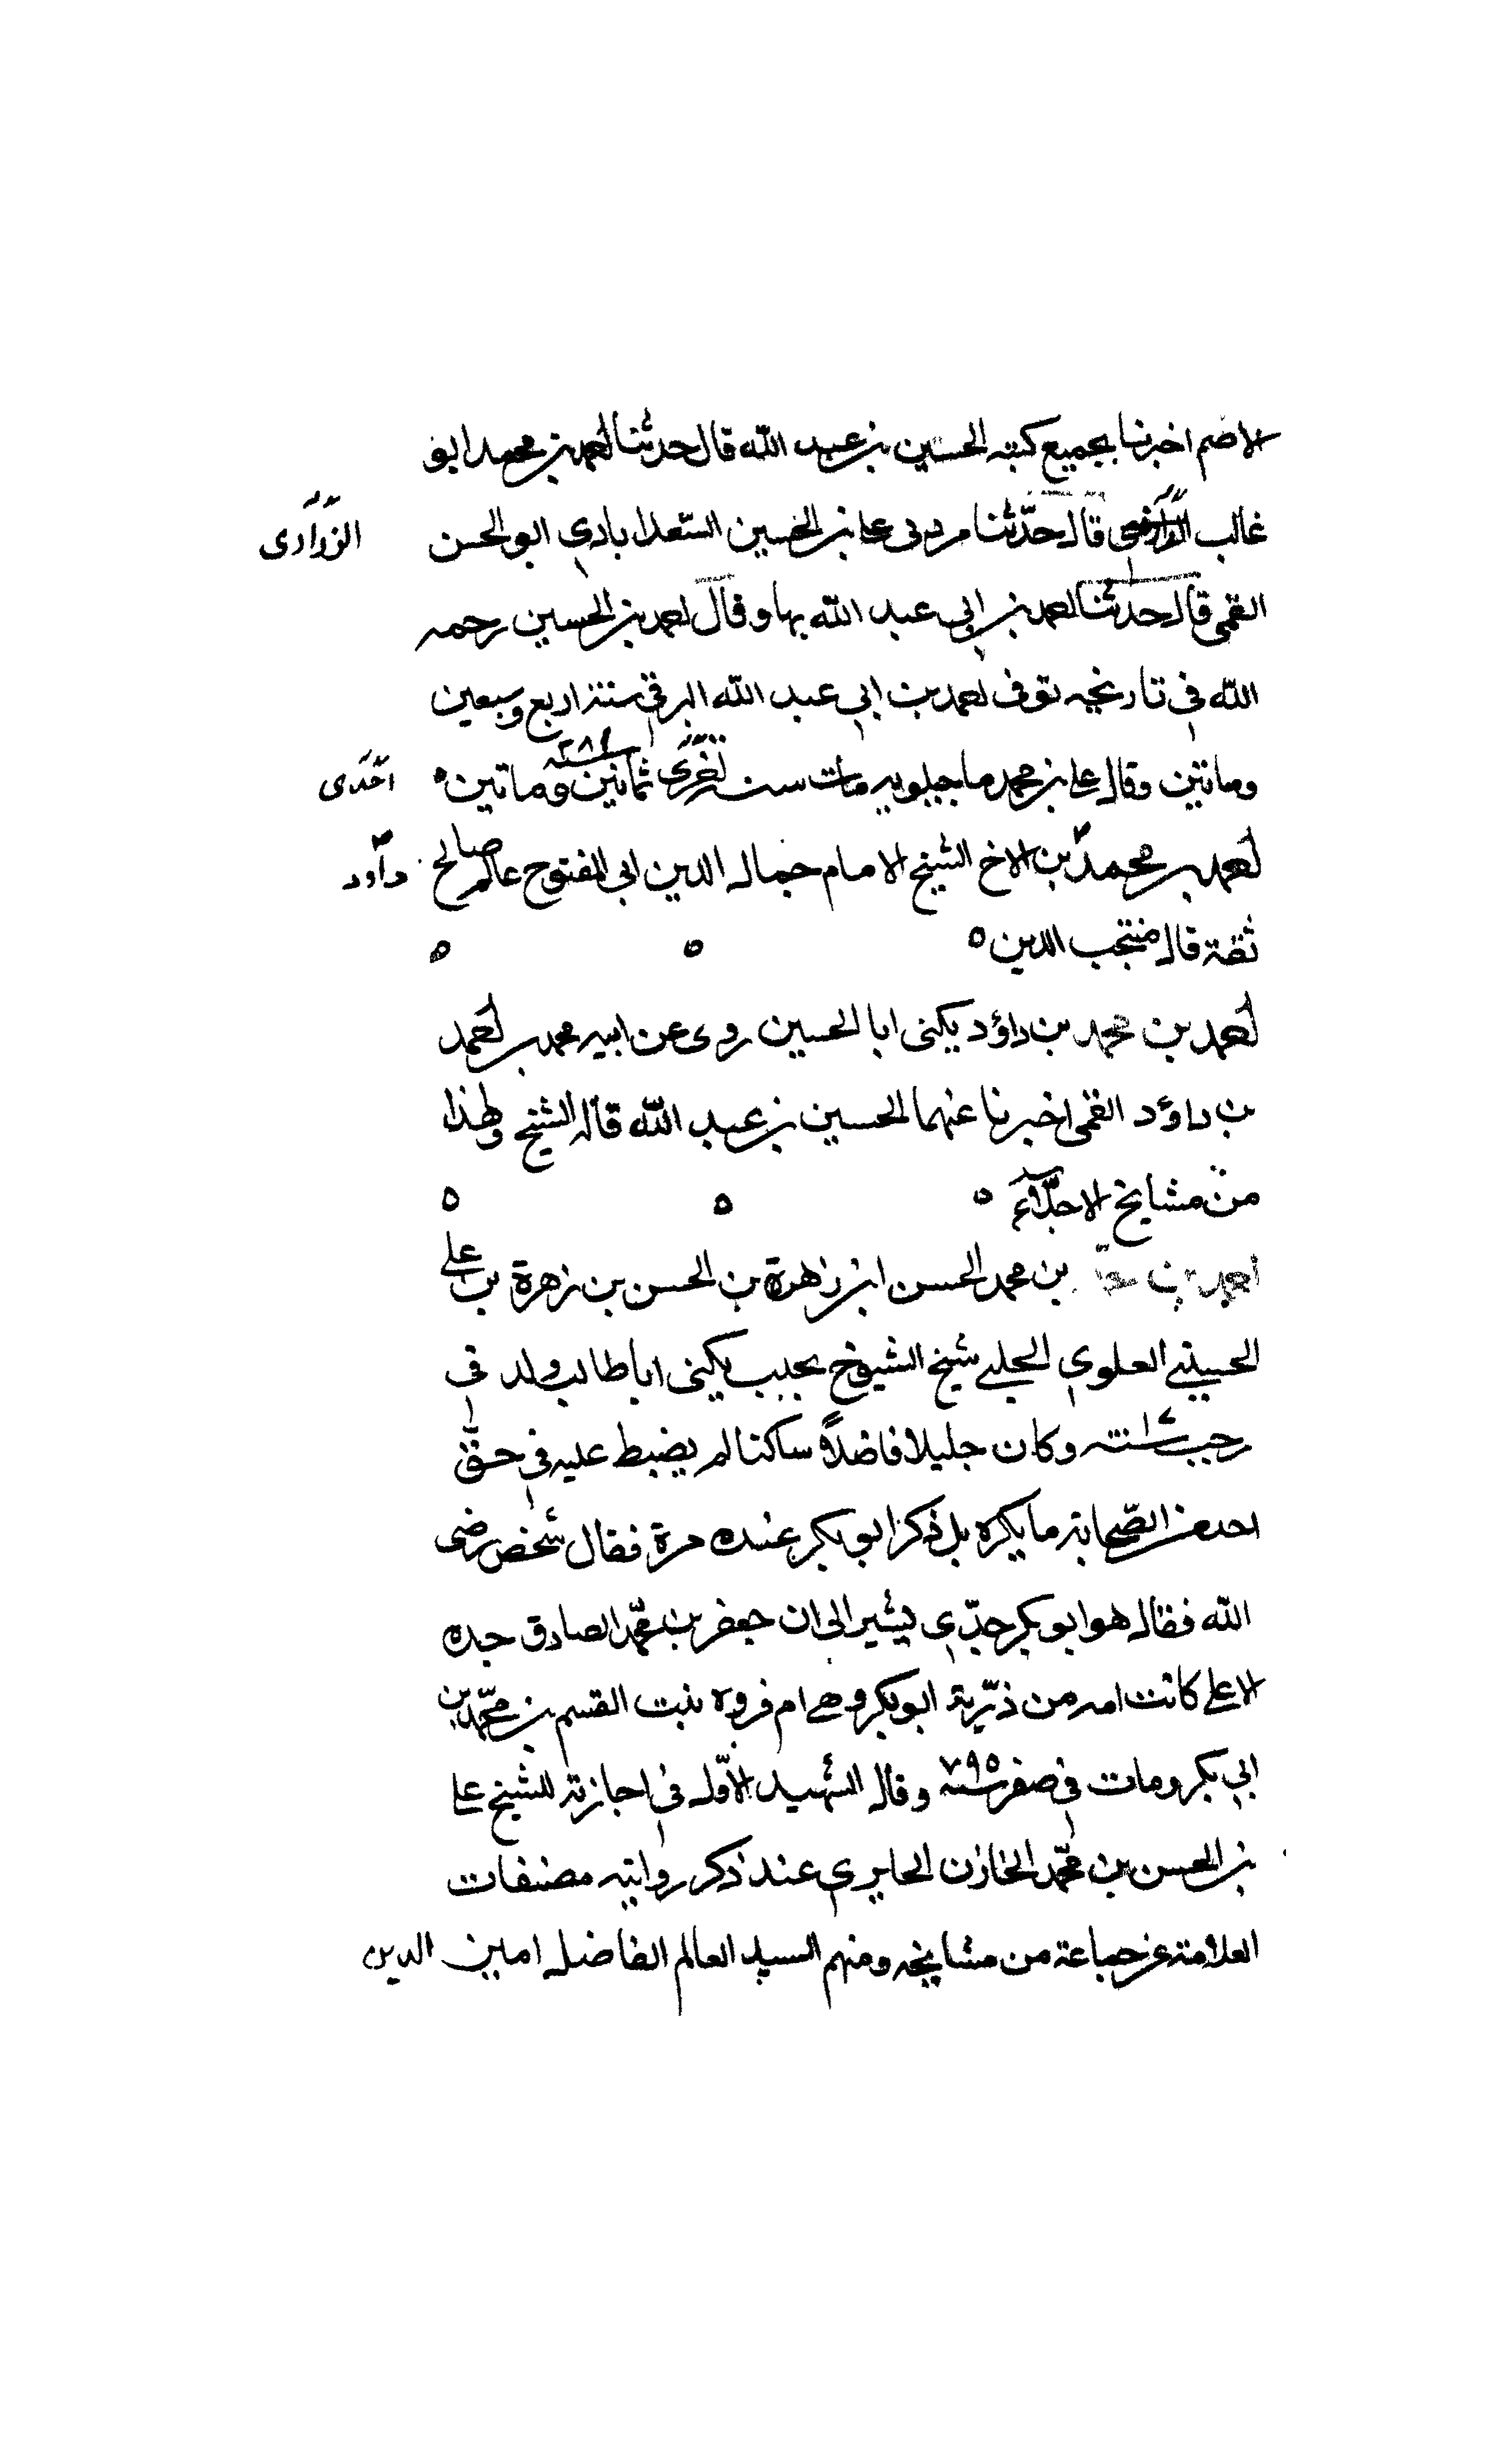 الاصم اخبرنا بجميع كتبه الحسين بن عبيد الله قال حدثنا احمد بن محمد ابو
غالب قال حدّثنا على بن الحسين السّعدابادي ابو الحسن
الزرارى
القمى قال حدثنا احمد بن ابي عبد الله بها وقال احمد بن الحسين رحمه
الله في تاريخه توفى احمد بن ابي عبد الله البرقي سنة اربع وسبعين
وماتين وقال على بن محمد ماجيلويه مات سنة ثمانين وماتين
احدى
احمد بن محمد بن الاخ الشيخ الامام جمال الدين ابى الفتوح عالم صالح
داود
ثقة قاله منتجب الدين
احمد بن محمد بن داؤد يكنى ابا الحسين روى عن ابيه محمد بن احمد
بن داؤد القمى اخبرنا عنهما الحسين بن عبيد الله قاله الشيخ وهذا
من مشايخ الاجلّاء
احمد بن بن محمد الحسن ابن زهرة بن الحسن بن زهرة بن على
الحسيني العلوي الحلبي شيخ الشيوخ بحلب يكنى ابا طالب ولد في
رجب سنة ٧١ وكان جليلا فاضلاً ساكنا لم يضبط عليه في حقّ
احد من الصّحابة ما يكره بل ذكر ابو بكر عنده مرة فقال شخص رضى
الله فقال هو ابو بكر جدّي يشير الى ان جعفر بن محمّد الصادق جده
الاعلى كانت امه من ذرّية ابو بكر وهي ام فروه بنت القسم بن محمّد بن
ابي بكر ومات في صفر سنة ٧٩٥ وقال الشهيد الاوّل في اجازته للشيخ على
بن الحسن بن محمّد الخازن الحايري عند ذكر روايته مصنفات
العلامة عن جماعة من مشايخه ومنهم السيد العالم الفاضل امين الدين